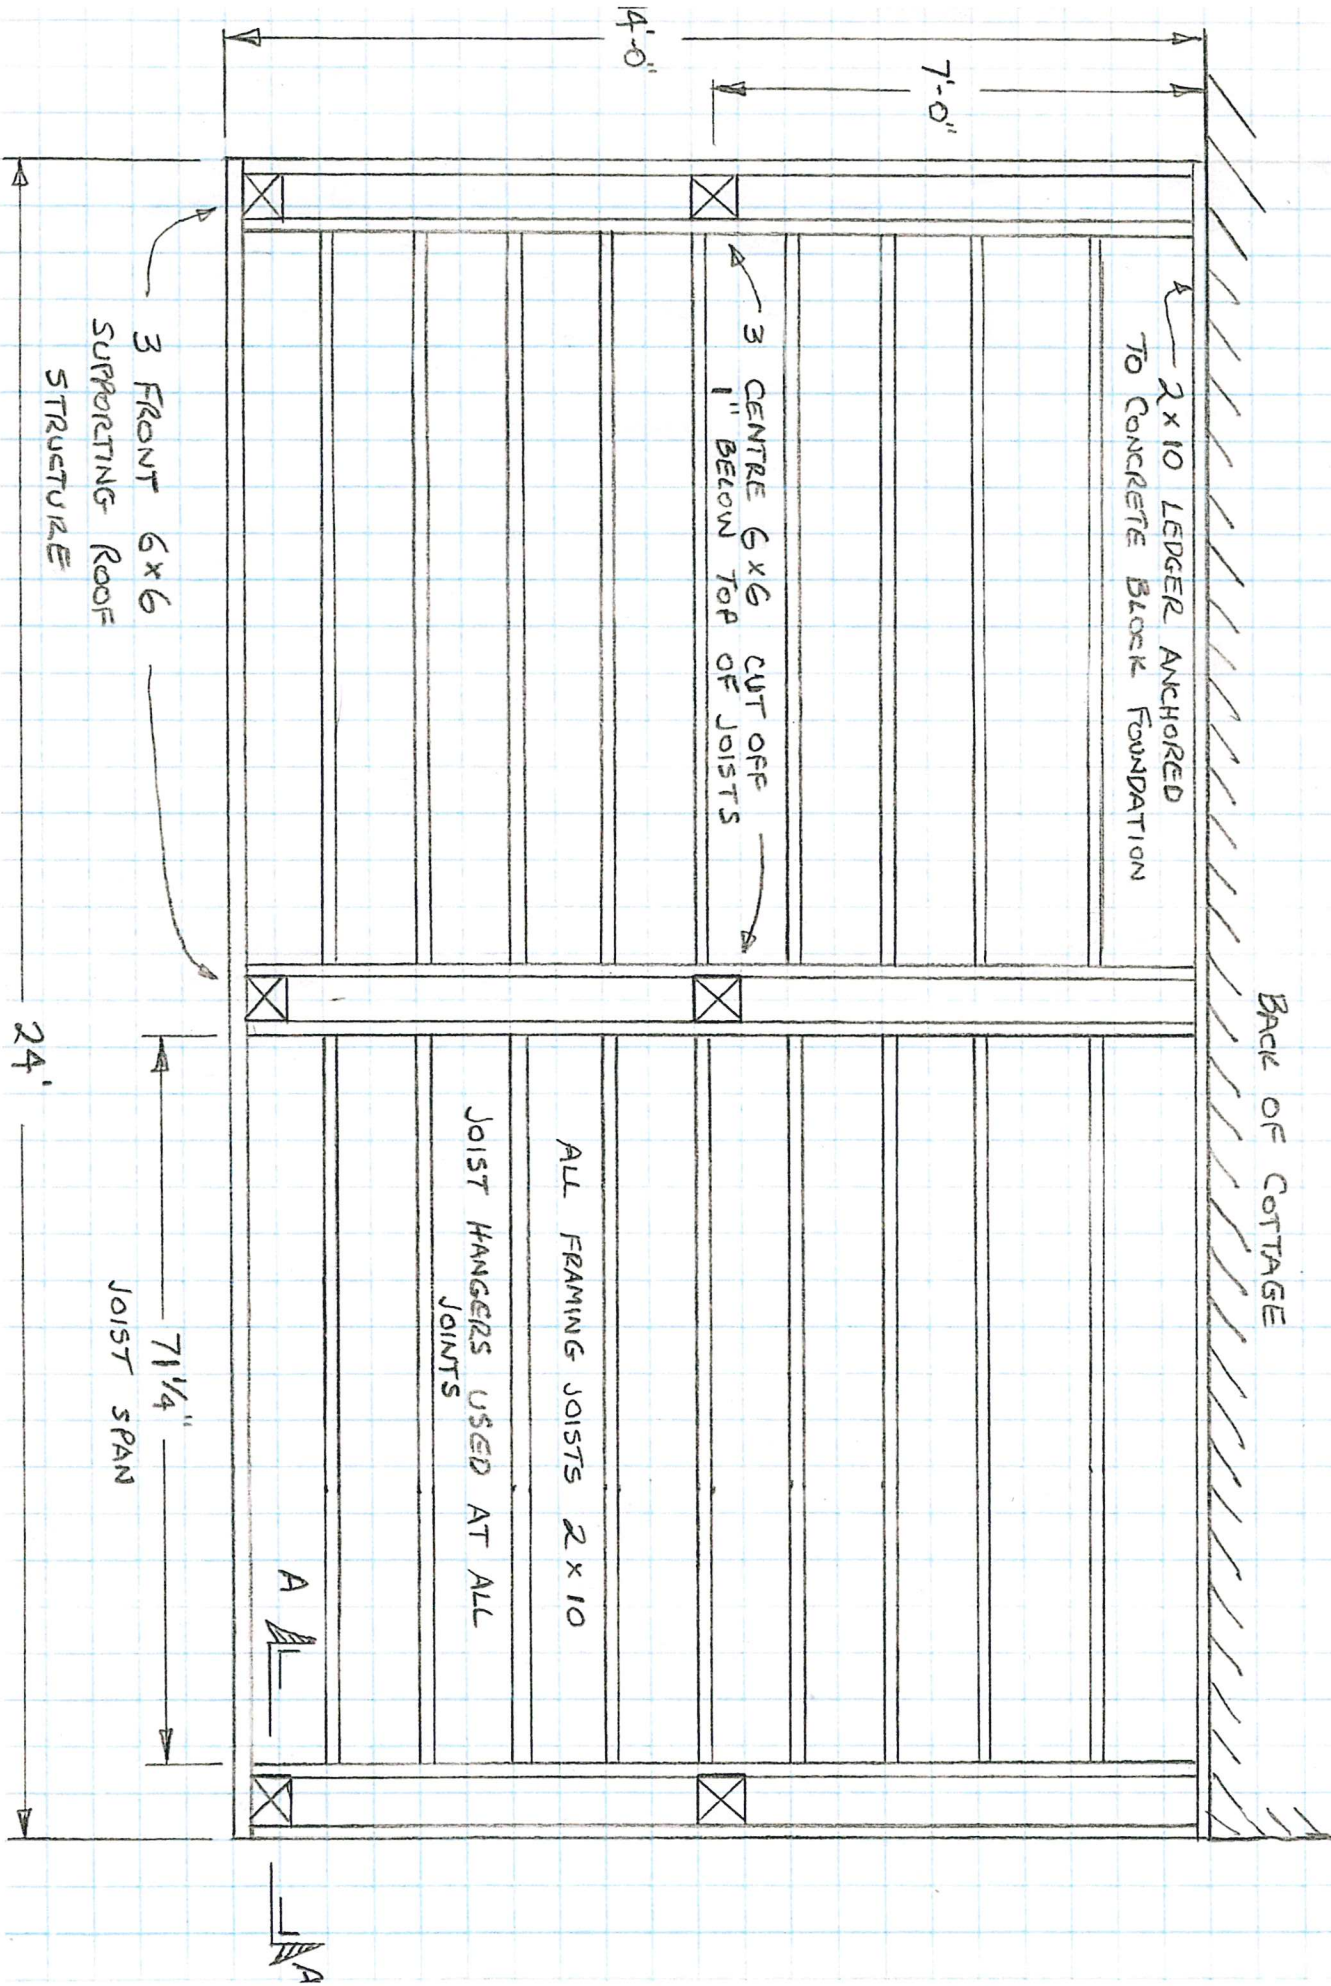 BACK OF COTTAGE
14'-0"
7'-0"
2 x 10 LEDGER ANCHORED
TO CONCRETE BLOCK FOUNDATION
3 CENTRE 6x6 CUT OFF
1" BELOW TOP OF JOISTS
ALL FRAMING JOISTS 2 x 10
JOIST HANGERS USED AT ALL
JOINTS
A
A
3 FRONT 6x6
SUPPORTING ROOF
STRUCTURE
71 1/4"
JOIST SPAN
24'